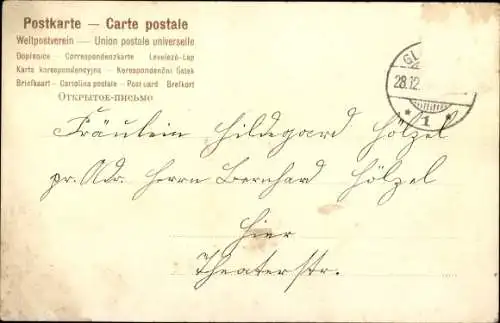 Postkarte — Carte postale
Weltpostverein — Union postale universelle
Dopisnice Correspondenzkarte Levelező-Lap
Karta korespondencyjna - Korespondenční lístek
Briefkaart - Cartolina postale - Post card Brefkort
Открытое-письмо
GL
28.12.
* 1 *
Fräulein Hildegard Hölzel
pr. Adr. Herrn Bernhard Hölzel
Hier
Theaterstr.